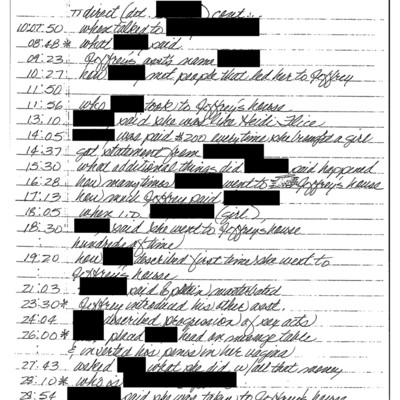 π direct (det. ) cont.:
10:07:50 when talked to
08:48* what said
09:23 Jeffrey's asst's name
10:27 how met people that led her to Jeffrey
11:50
11:56 who took to Jeffrey's house
13:10 said she was like Heidi Fleice
14:05 was paid $200 everytime she brought a girl
14:37 got statement from
15:30 what additional things did said happened
16:28 how many times went to Jeffrey's house
17:13 how much Jeffrey paid
18:05 when I.D. (girl)
18:30 said she went to Jeffrey's house
hundreds of time)
19:20 how described first time she went to
Jeffrey's house
21:03 said masturbated
23:30* Jeffrey introduced his other asst.
24:04 described progression of sex acts
26:00* placed head on massage table
& inserted his penis in her vagina
27:43 asked what she did w/ all that money
28:10* who is
28:54 said she was taken to Jeffrey's house